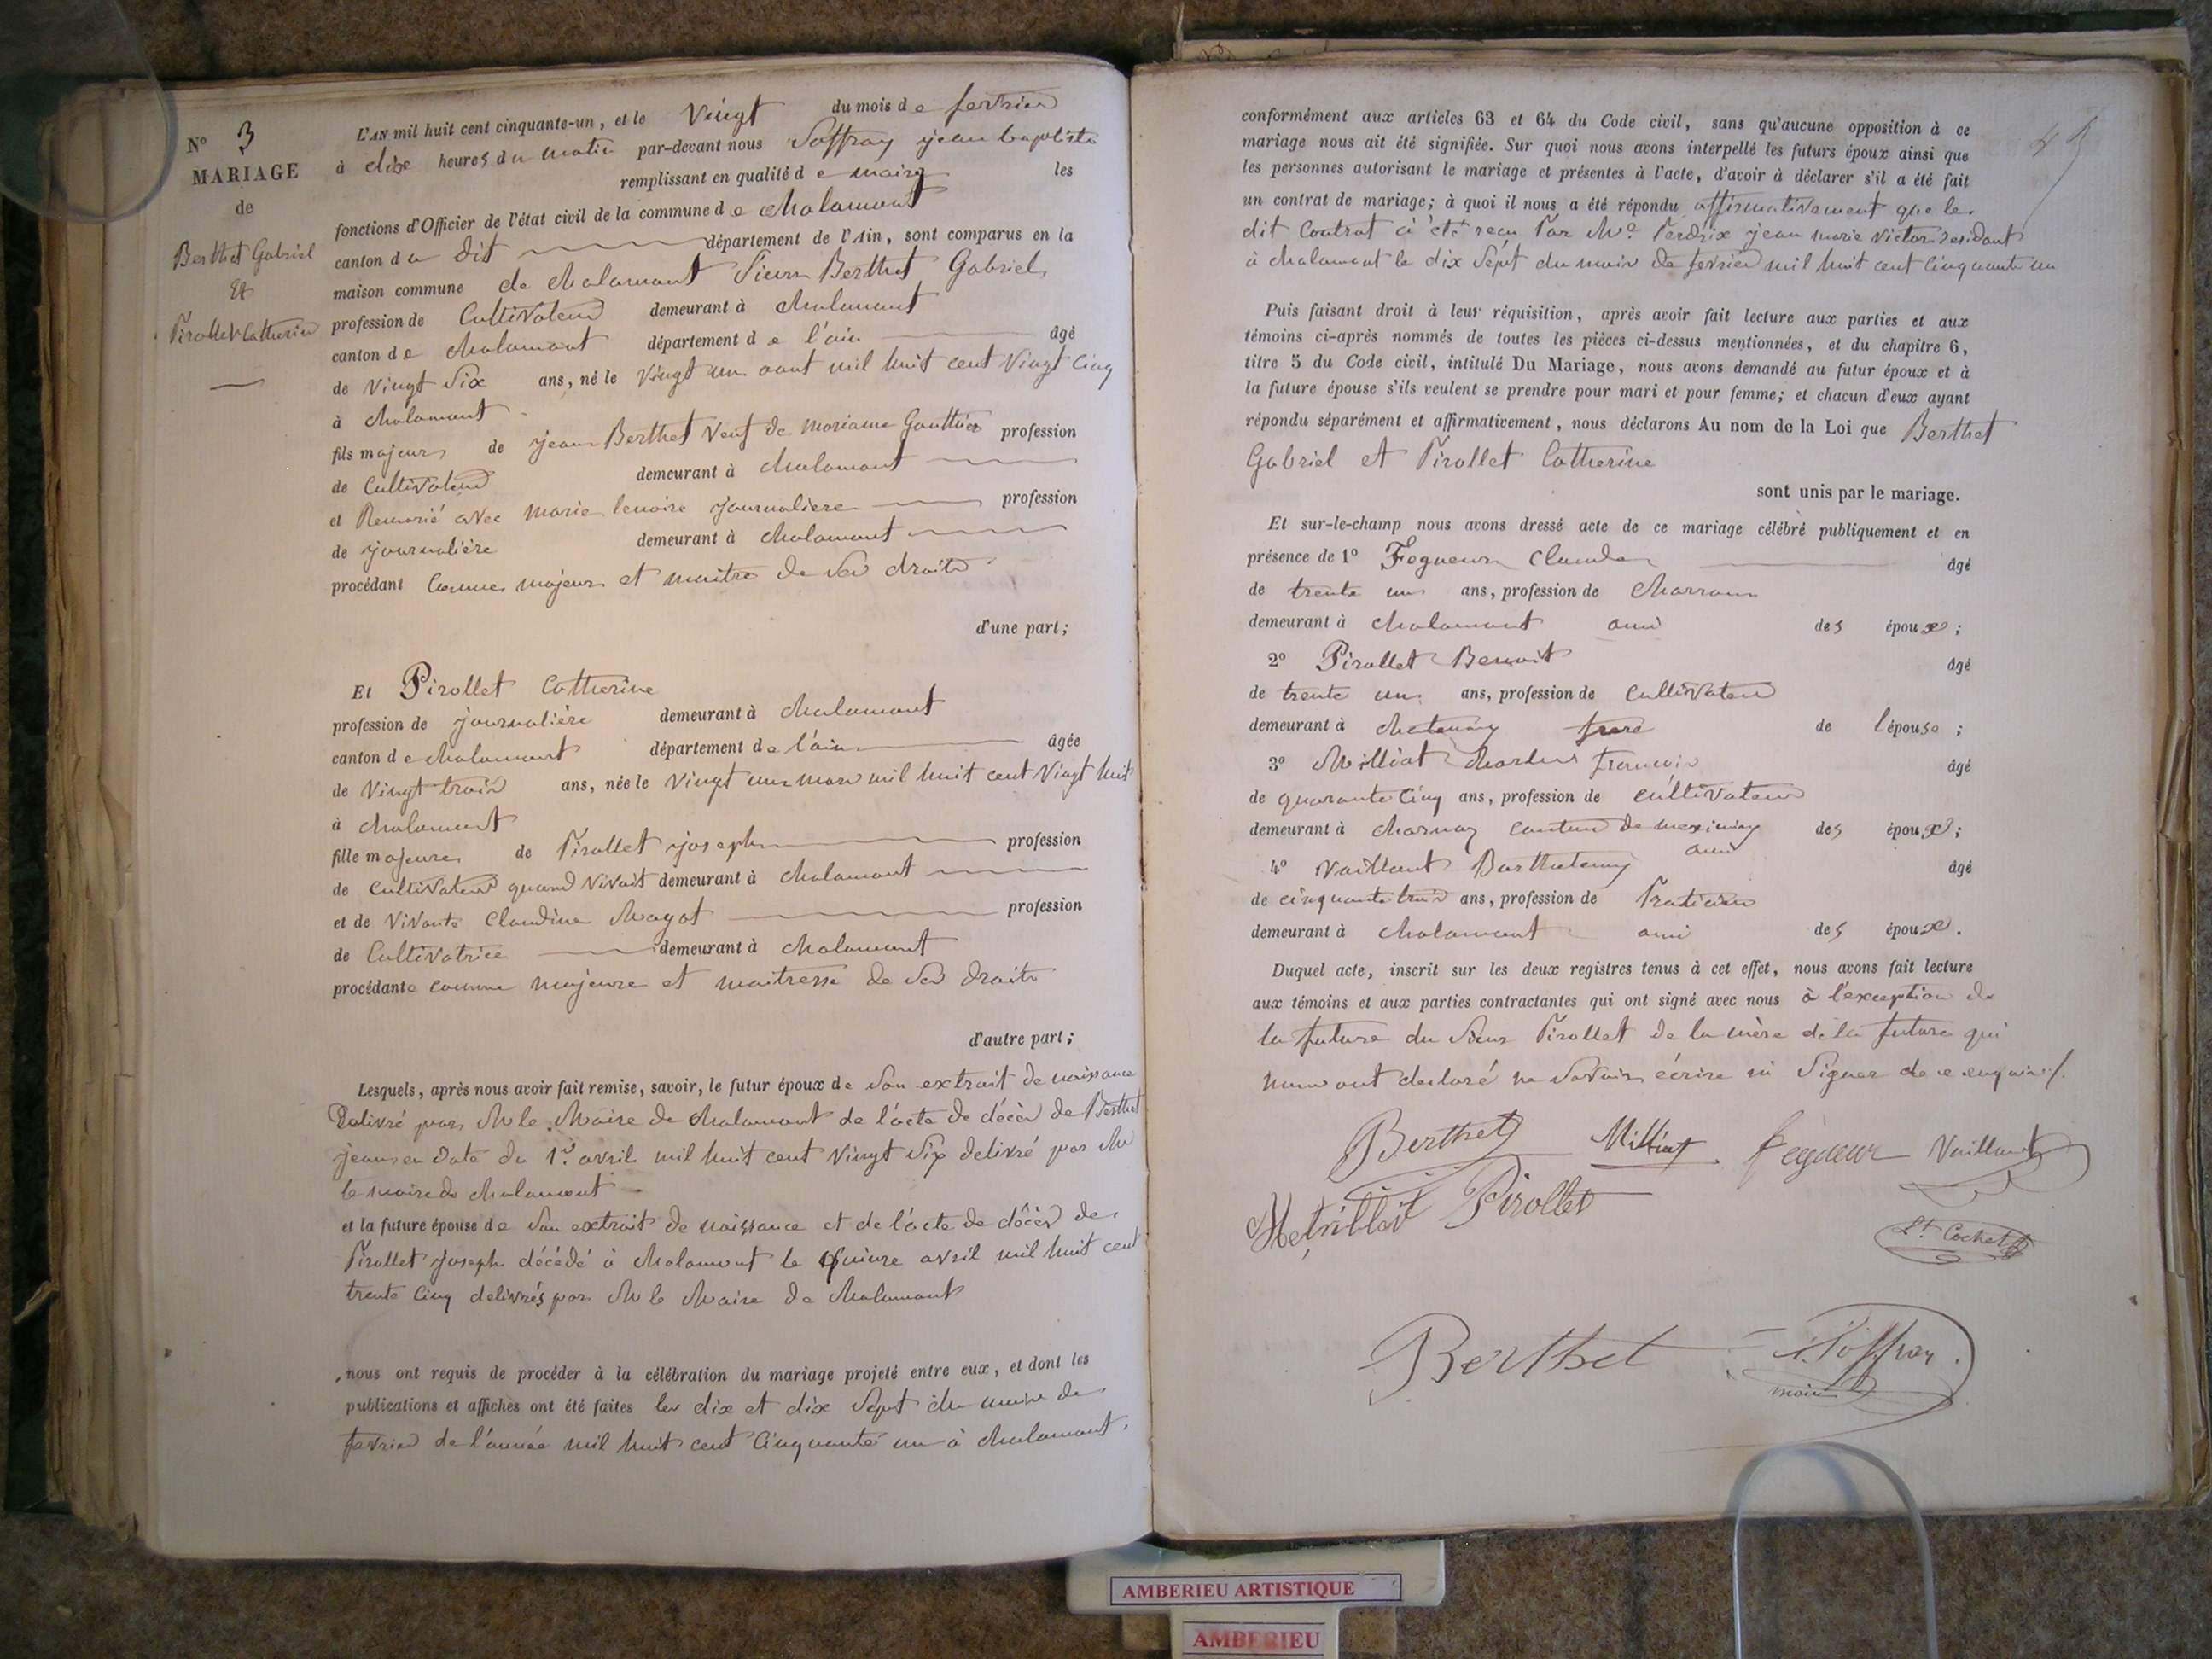 N° 3
MARIAGE
de
Berthet Gabriel
Et
Pirollet Catherine
L'AN mil huit cent cinquante-un, et le Vingt du mois de fevrier
à dix heures du matin par-devant nous Soffray jean baptiste
remplissant en qualité de maire les
fonctions d'Officier de l'état civil de la commune de chalamont
canton du dit département de l'Ain, sont comparus en la
maison commune de chalamont Sieur Berthet Gabriel
profession de Cultivateur demeurant à chalamont
canton de chalamont département de l'ain âgé
de Vingt Six ans, né le Vingt un aout mil huit cent Vingt Cinq
à chalamont
fils majeur de jean Berthet Veuf de mariane Gauthier profession
de Cultivateur demeurant à chalamont
et Remarié avec marie lenoire journaliere profession
de journalière demeurant à chalamont
procédant comme majeur et maitre de ses droits
d'une part;
Et Pirollet Catherine
profession de journalière demeurant à chalamont
canton de chalamont département de l'ain âgée
de Vingt trois ans, née le Vingt un mars mil huit cent Vingt huit
à chalamont
fille majeure de Pirollet joseph profession
de cultivateur quand vivait demeurant à chalamont
et de Vivante Claudine Magot profession
de Cultivatrice demeurant à chalamont
procédante comme majeure et maitresse de ses droits
d'autre part;
Lesquels, après nous avoir fait remise, savoir, le futur époux de Son extrait de naissance
Delivré par M le Maire de chalamont de l'acte de décès de Berthet
jean en date du 1er avril mil huit cent Vingt Six delivré par M
le maire de chalamont
et la future épouse de Son extrait de naissance et de l'acte de décès de
Pirollet joseph décédé à chalamont le quinze avril mil huit cent
trente Cinq delivrés par M le Maire de chalamont
nous ont requis de procéder à la célébration du mariage projeté entre eux, et dont les
publications et affiches ont été faites les dix et dix Sept du mois de
fevrier de l'année mil huit cent Cinquante un à chalamont.
conformément aux articles 63 et 64 du Code civil, sans qu'aucune opposition à ce
mariage nous ait été signifiée. Sur quoi nous avons interpellé les futurs époux ainsi que
les personnes autorisant le mariage et présentes à l'acte, d'avoir à déclarer s'il a été fait
un contrat de mariage; à quoi il nous a été répondu affirmativement que le
dit Contrat à été recu Par Me Perdrix jean marie Victor residant
à chalamont le dix Sept du mois de fevrier mil huit cent Cinquante un
Puis faisant droit à leur réquisition, après avoir fait lecture aux parties et aux
témoins ci-après nommés de toutes les pièces ci-dessus mentionnées, et du chapitre 6,
titre 5 du Code civil, intitulé Du Mariage, nous avons demandé au futur époux et à
la future épouse s'ils veulent se prendre pour mari et pour femme; et chacun d'eux ayant
répondu séparément et affirmativement, nous déclarons Au nom de la Loi que Berthet
Gabriel et Pirollet Catherine
sont unis par le mariage.
Et sur-le-champ nous avons dressé acte de ce mariage célébré publiquement et en
présence de 1° Fegueur Claude âgé
de trente un ans, profession de Charron
demeurant à chalamont ami des époux;
2° Pirollet Benoit âgé
de trente un ans, profession de Cultivateur
demeurant à chatenay frere de l'épouse;
3° Milliat charles françois âgé
de quarante Cinq ans, profession de cultivateur
demeurant à charnoz canton de meximieux ami des époux;
4° Vaillant Barthelemy âgé
de cinquante trois ans, profession de Praticien
demeurant à chalamont ami des époux.
Duquel acte, inscrit sur les deux registres tenus à cet effet, nous avons fait lecture
aux témoins et aux parties contractantes qui ont signé avec nous à l'exception de
la future du Sieur Pirollet de la mère de la future qui
nous ont declaré ne Savoir écrire ni Signer de ce enquis
Berthet Milliat fegueur Vaillant
Pirollet
Lt Cochet
Berthet Soffray
maire
AMBERIEU ARTISTIQUE
AMBERIEU